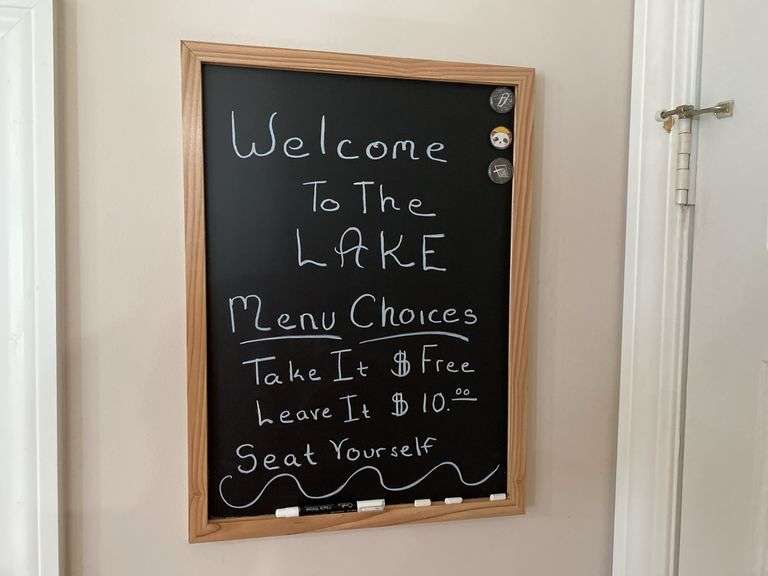 Welcome
To The
LAKE
Menu Choices
Take It $ Free
Leave It $ 10.00
Seat Yourself